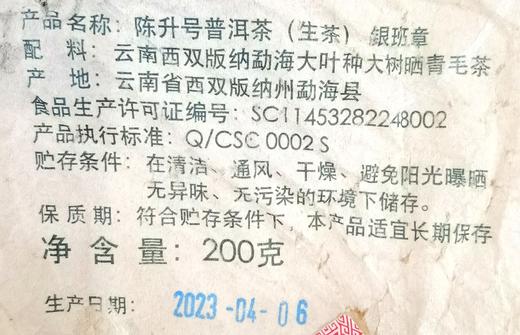 产品名称：陈升号普洱茶（生茶）银班章
配　料：云南西双版纳勐海大叶种大树晒青毛茶
产　地：云南省西双版纳州勐海县
食品生产许可证编号：SC11453282248002
产品执行标准：Q/CSC 0002 S
贮存条件：在清洁、通风、干燥、避免阳光曝晒
无异味、无污染的环境下储存。
保 质 期：符合贮存条件下，本产品适宜长期保存
净 含 量：200克
生产日期：2023-04-06